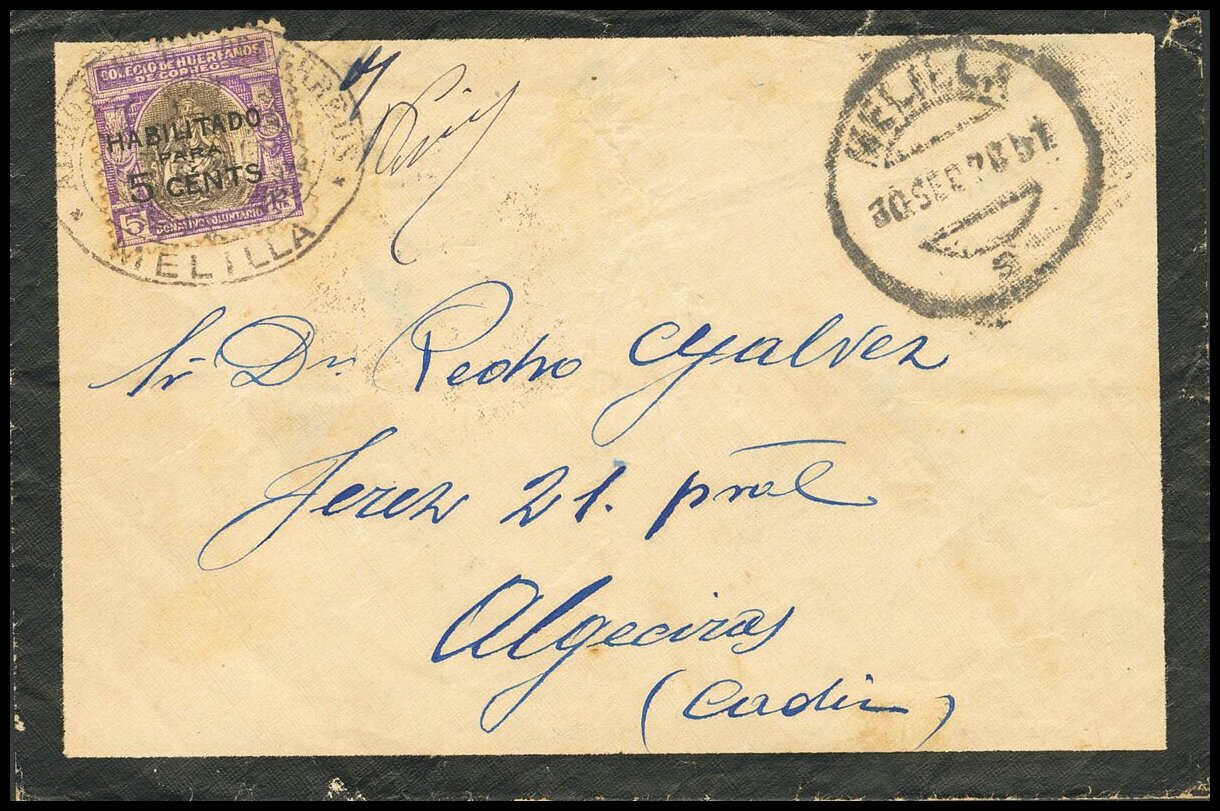 COLEGIO DE HUERFANOS
DE CORREOS
HABILITADO
PARA
5 CENTS
5 DONATIVO VOLUNTARIO
MELILLA
MELILLA
S
Sr Dn Pedro Galvez
Jerez 21. pral
Algeciras
(Cadiz)